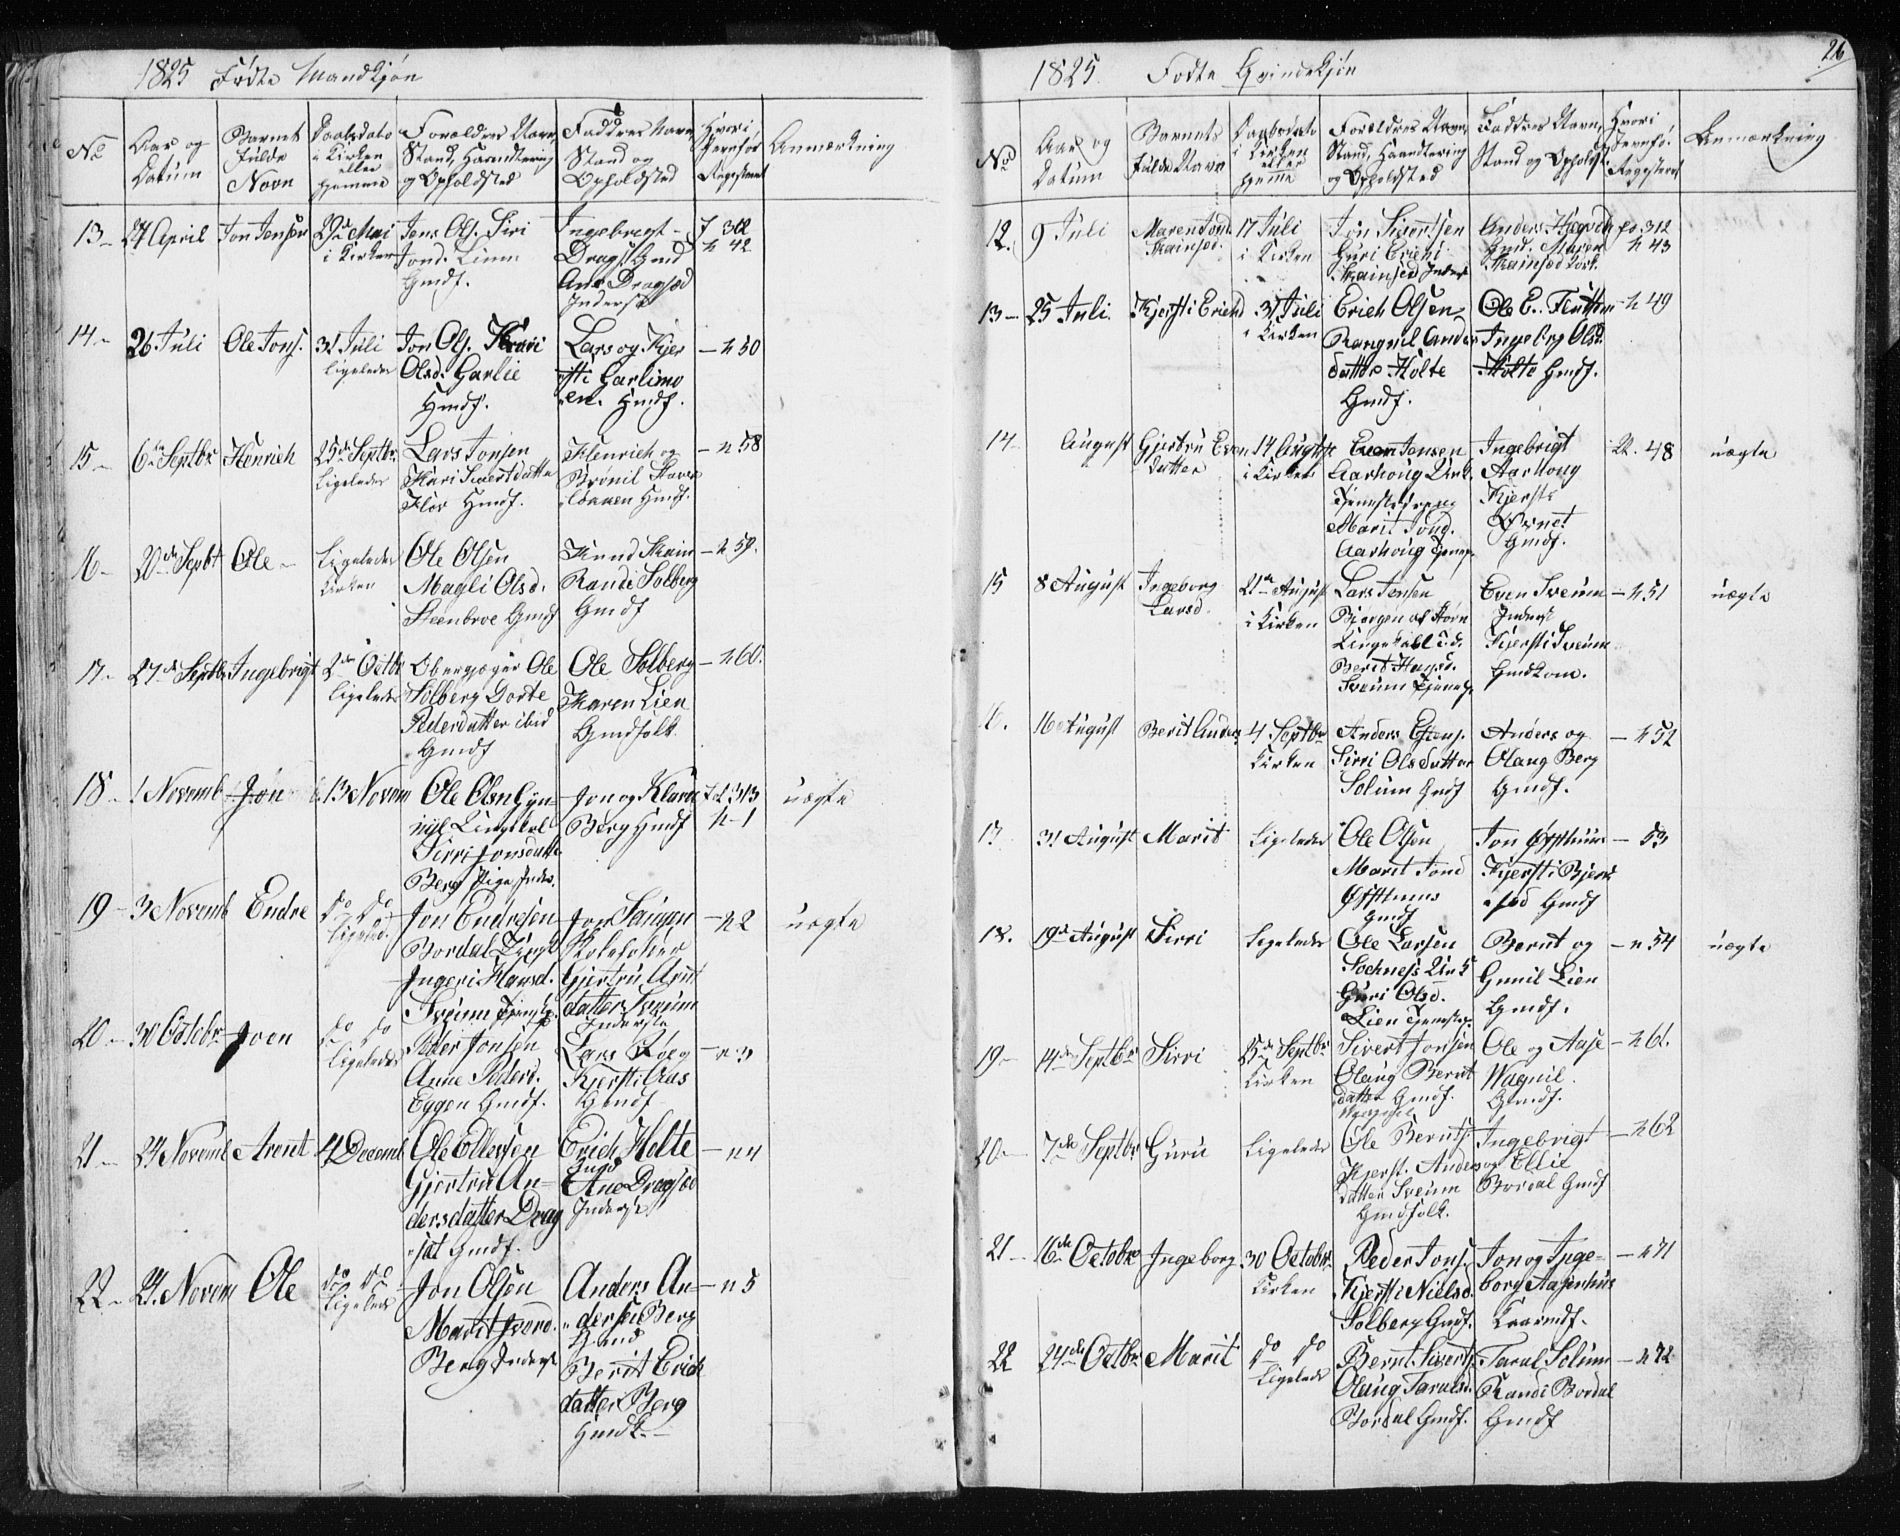 1825 Fødte Mandkjøn
No
Aar og
Datum
Barnets
fulde
Navn
Daabsdato
i Kirken
eller
hjemme
Forældres Navn,
Stand, Haandtering
og Opholdsted
Faddres Navn,
Stand og
Opholdsted
Hvori
Jevnfør
Registeret
Anmærkning
13 24 April Jon Jensen 29de Mai
i Kirken
Jens Ols. Siri
Jond. Liinn
Gmdf.
Ingebrigt
Dragst Gmd
Ane Dragsed
Inderst
f 312
n 42
14 26 Juli Ole Jons. 31 Juli
Ligeledes
Jon Ols. Kari
Olsd. Garlie
Hmdf.
Lars og Kjer
sti Garlimo
en. Hmdf.
n 50
15 6te Septbr Henrich 25de Septbr
Ligeledes
Lars Jonsen
Kari Sivertdatter
Flor Hmdf.
Henrich og
Brønil
Hmdf.
n 58
16 20de Sept Ole
Ligeledes
Kirken
Ole Olsen
Magli Olsd.
Steenbroe Gmdf
Knud Kain
Randi Solberg
Gmdf
n 59.
17 27de Septbr Ingebrigt 2den Octbr
Ligeledes
Oberjæger Ole
Solberg Dorte
Pederdatter ibid
Gmdf
Ole Solberg
Maren Lien
Gmdfolk
n 60.
18 1 Novemb Jon 13 Novem
Ole Olsen Gyn
nyil Ungkarl
Sirri Jonsdatt
Berg Pige Inders.
Jon og Klara
Berg Hmdf
f 313
n 1
uægte
19 3 Novemb Endre do do
Ligeled.
Jon Endresen
Bordal Tjngk
Ingeri Hansd.
Sveum Tjeneste
Jon Saugen
Skoleholder
Gjertru Arnt
datter Sveum
Inderste
n 2
uægte
20 30 Octobr Joen do do
Ligeledes
Peder Jonsen
Anne Peders.
Eggen Gmdf.
Lars Roeg
Kjersti Aas
Gmdf
n 3
21 24 Novemb Arent 4 Decemb
Ole Ellevsen
Gjertru An-
dersdatter Drag
sæt Gmdf.
Erich Holte
Gmd
Ane Dragsæd
Inderst
n 4
22 24. Novem Ole do do
Ligeledes
Jon Olsen
Marit Iverd.
Berg Inderst
Anders An-
dersen Berg
Gmd
Berit Erich
datter Berg
Gmdk.
n 5
26
1825. Fødte Qvindekjøn
No
Aar og
Datum
Barnets
fulde Navn
Daabsdato
i Kirken
eller
hjemme
Forældres Navn,
Stand, Haandtering
og Opholdsted
Faddres Navn,
Stand og Opholdst
Hvori
Jevnfø.
Registeret
Anmærkning
12. 9 Juli Maren Jond
Kainsæd.
17 Juli
i Kirken
Jon Sivertsen
Guri Erichs
Kainsæd Inderst
Anders Hagen
Gmd. Maren
Kainsæd
fo 312
n 43
13 25 Juli. Kjersti Erichd 31 Juli
i Kirken
Erich Olsen
Rangnil Anders
datter Holte
Gmdf.
Ole E. Fluttum
Ingebrg Olsd.
Holte Gmdf.
n 49
14 August Gjertru Even
datter
14 August
i Kirken
Even Jensen
Aarhoug Unk.
Tjenestdreng
Marit Jond.
Aarhoug Tjenep.
Ingebrigt
Aarhoug
Kjersti
Gmdf.
n. 48
uægte
15 8 August Ingeborg
Larsd.
21de August
i Kirken
Lars Jensen
Bjergen af Støren
Ungekarl
Berit Hansd.
Sveum Tjenep.
Even Sveum
Inderst
Kjersti Sveum
Gmdkone.
n 51
uægte
16. 16 August Berit Anders 4 Septbr
Kirken
Anders Estens.
Sirri Olsdatter
Solum Gmdf
Anders og
Olaug Berg
Gmdf.
n 52
17 31 August Marit Ligeledes
Ole Olsen
Marit Jond
Øfsthuus
Gmdf
Jon Øfsthuus
Kjersti Bjerk
sed Gmdf
53
18. 19de August Sirri Ligeledes
Ole Larsen
Sochness Unk
Guri Olsd.
Lien Tjenestep.
Bernt og
Gunil Lien
Gmdf.
n 54
uægte
19 14de Septbr Sirri 25de Septbr
Kirken
Sivert Jonsen
Olaug Bernt
datter Gmdf.
Ole og Aase
Wagnil.
Gmdf.
n 61.
20 7de Septbr Guru Ligeledes
Ole Bernts.
Kjerst. Anders
datter Sveum
Gmdfolk.
Ingebrigt
og Ellie
Bordal Gmdf
n 62
21 16de Octobr Ingeborg 30 Octobr.
Kirken
Peder Jons.
Kjersti Nielsd.
Solberg Gmdf.
Jon og Inge-
borg Aasenhuus
n 71
22 24de Octbr Marit do do
Ligeledes
Bernt Sivert.
Olaug Taralsd.
Bordal Gmdf.
Taral Solum
Randi Bordal
Gmdf
n 72